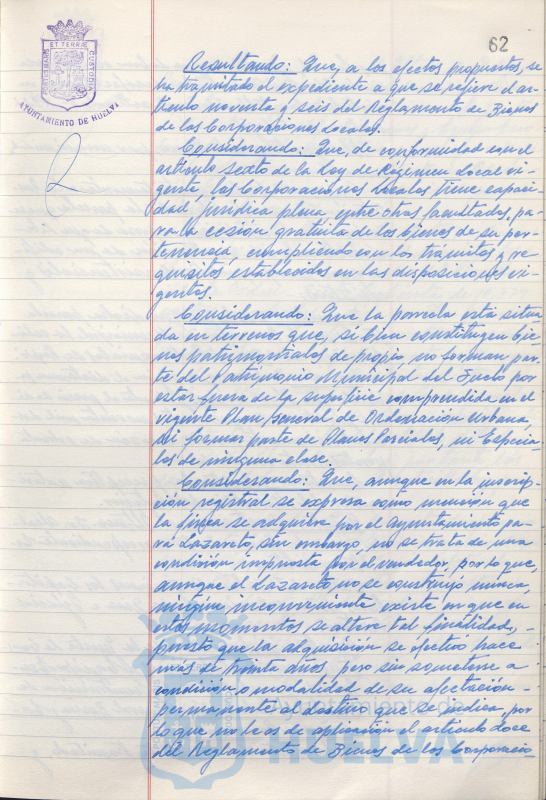 62
PORTUS MARIS ET TERRAE CUSTODIA
AYUNTAMIENTO DE HUELVA
Resultando: Que, a los efectos propuestos, se
ha tramitado el expediente a que se refiere el ar-
tículo noventa y seis del Reglamento de Bienes
de las Corporaciones Locales.
Considerando: Que, de conformidad con el
artículo sexto de la Ley de Régimen Local vi-
gente, las Corporaciones Locales tiene capaci-
dad jurídica plena, entre otras facultades, pa-
ra la cesión gratuita de los bienes de su per-
tenencia, cumpliendo con los trámites y re-
quisitos establecidos en las disposiciones vi-
gentes.
Considerando: Que la parcela está situa-
da en terrenos que, si bien constituyen bie-
nes patrimoniales de propio, no forman par-
te del Patrimonio Municipal del Suelo por
estar fuera de la superficie comprendida en el
vigente Plan General de Ordenación Urbana,
ni formar parte de Planes Parciales, ni Especia-
les de ninguna clase.
Considerando: Que, aunque en la inscrip-
ción registral se expresa como mención que
la finca se adquiere por el Ayuntamiento pa-
ra Lazareto, sin embargo, no se trata de una
condición impuesta por el vendedor, por lo que,
aunque el Lazareto no se construyó nunca,
ningún inconveniente existe en que en
estos momentos se altere tal finalidad,-
puesto que la adquisición se efectuó hace
más de treinta años, pero sin someterse a
condición o modalidad de su afectación-
permanente al destino que se indica, por
lo que no le es de aplicación el artículo doce
del Reglamento de Bienes de las Corporacio-
Ayuntamiento de
HUELVA